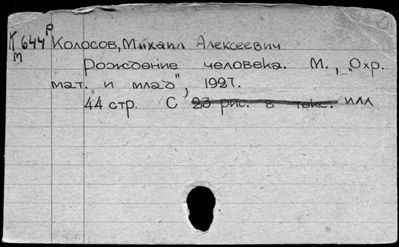 Р
К 644 Колосов, Михаил Алексеевич
М
Рождение человека. М., „Охр.
мат. и млад", 1927.
44 стр. С 23 рис. в текс. илл